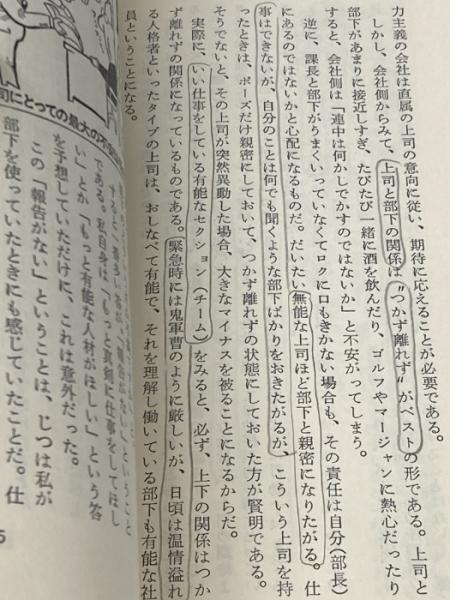 力主義の会社は直属の上司の意向に従い、期待に応えることが必要である。
しかし、会社側からみて、上司と部下の関係は〝つかず離れず〟がベストの形である。上司と
部下があまりに接近しすぎ、たびたび一緒に酒を飲んだり、ゴルフやマージャンに熱心だったり
すると、会社側は「連中は何かしでかすのではないか」と不安がってしまう。
逆に、課長と部下がうまくいっていなくてロクに口もきかない場合も、その責任は自分(部長)
にあるのではないかと心配になるものだ。だいたい無能な上司ほど部下と親密になりたがる。仕
事はできないが、自分のことは何でも聞くような部下ばかりをおきたがるが、こういう上司を持
ったときは、ポーズだけ親密にしておいて、つかず離れずの状態にしておいた方が賢明である。
そうでないと、その上司が突然異動した場合、大きなマイナスを被ることになるからだ。
実際に、いい仕事をしている有能なセクション(チーム)をみると、必ず、上下の関係はつか
ず離れずの関係になっているものである。緊急時には鬼軍曹のように厳しいが、日頃は温情溢れ
る人格者といったタイプの上司は、おしなべて有能で、それを理解し働いている部下も有能な社
員ということになる。
司にとっての最大の不
である。私自身は「もっと真剣に仕事をしてほし
い」とか「もっと有能な人材がほしい」という答
を予想していただけに、これは意外だった。
この「報告がない」ということは、じつは私が
部下を使っていたときにも感じていたことだ。仕
5